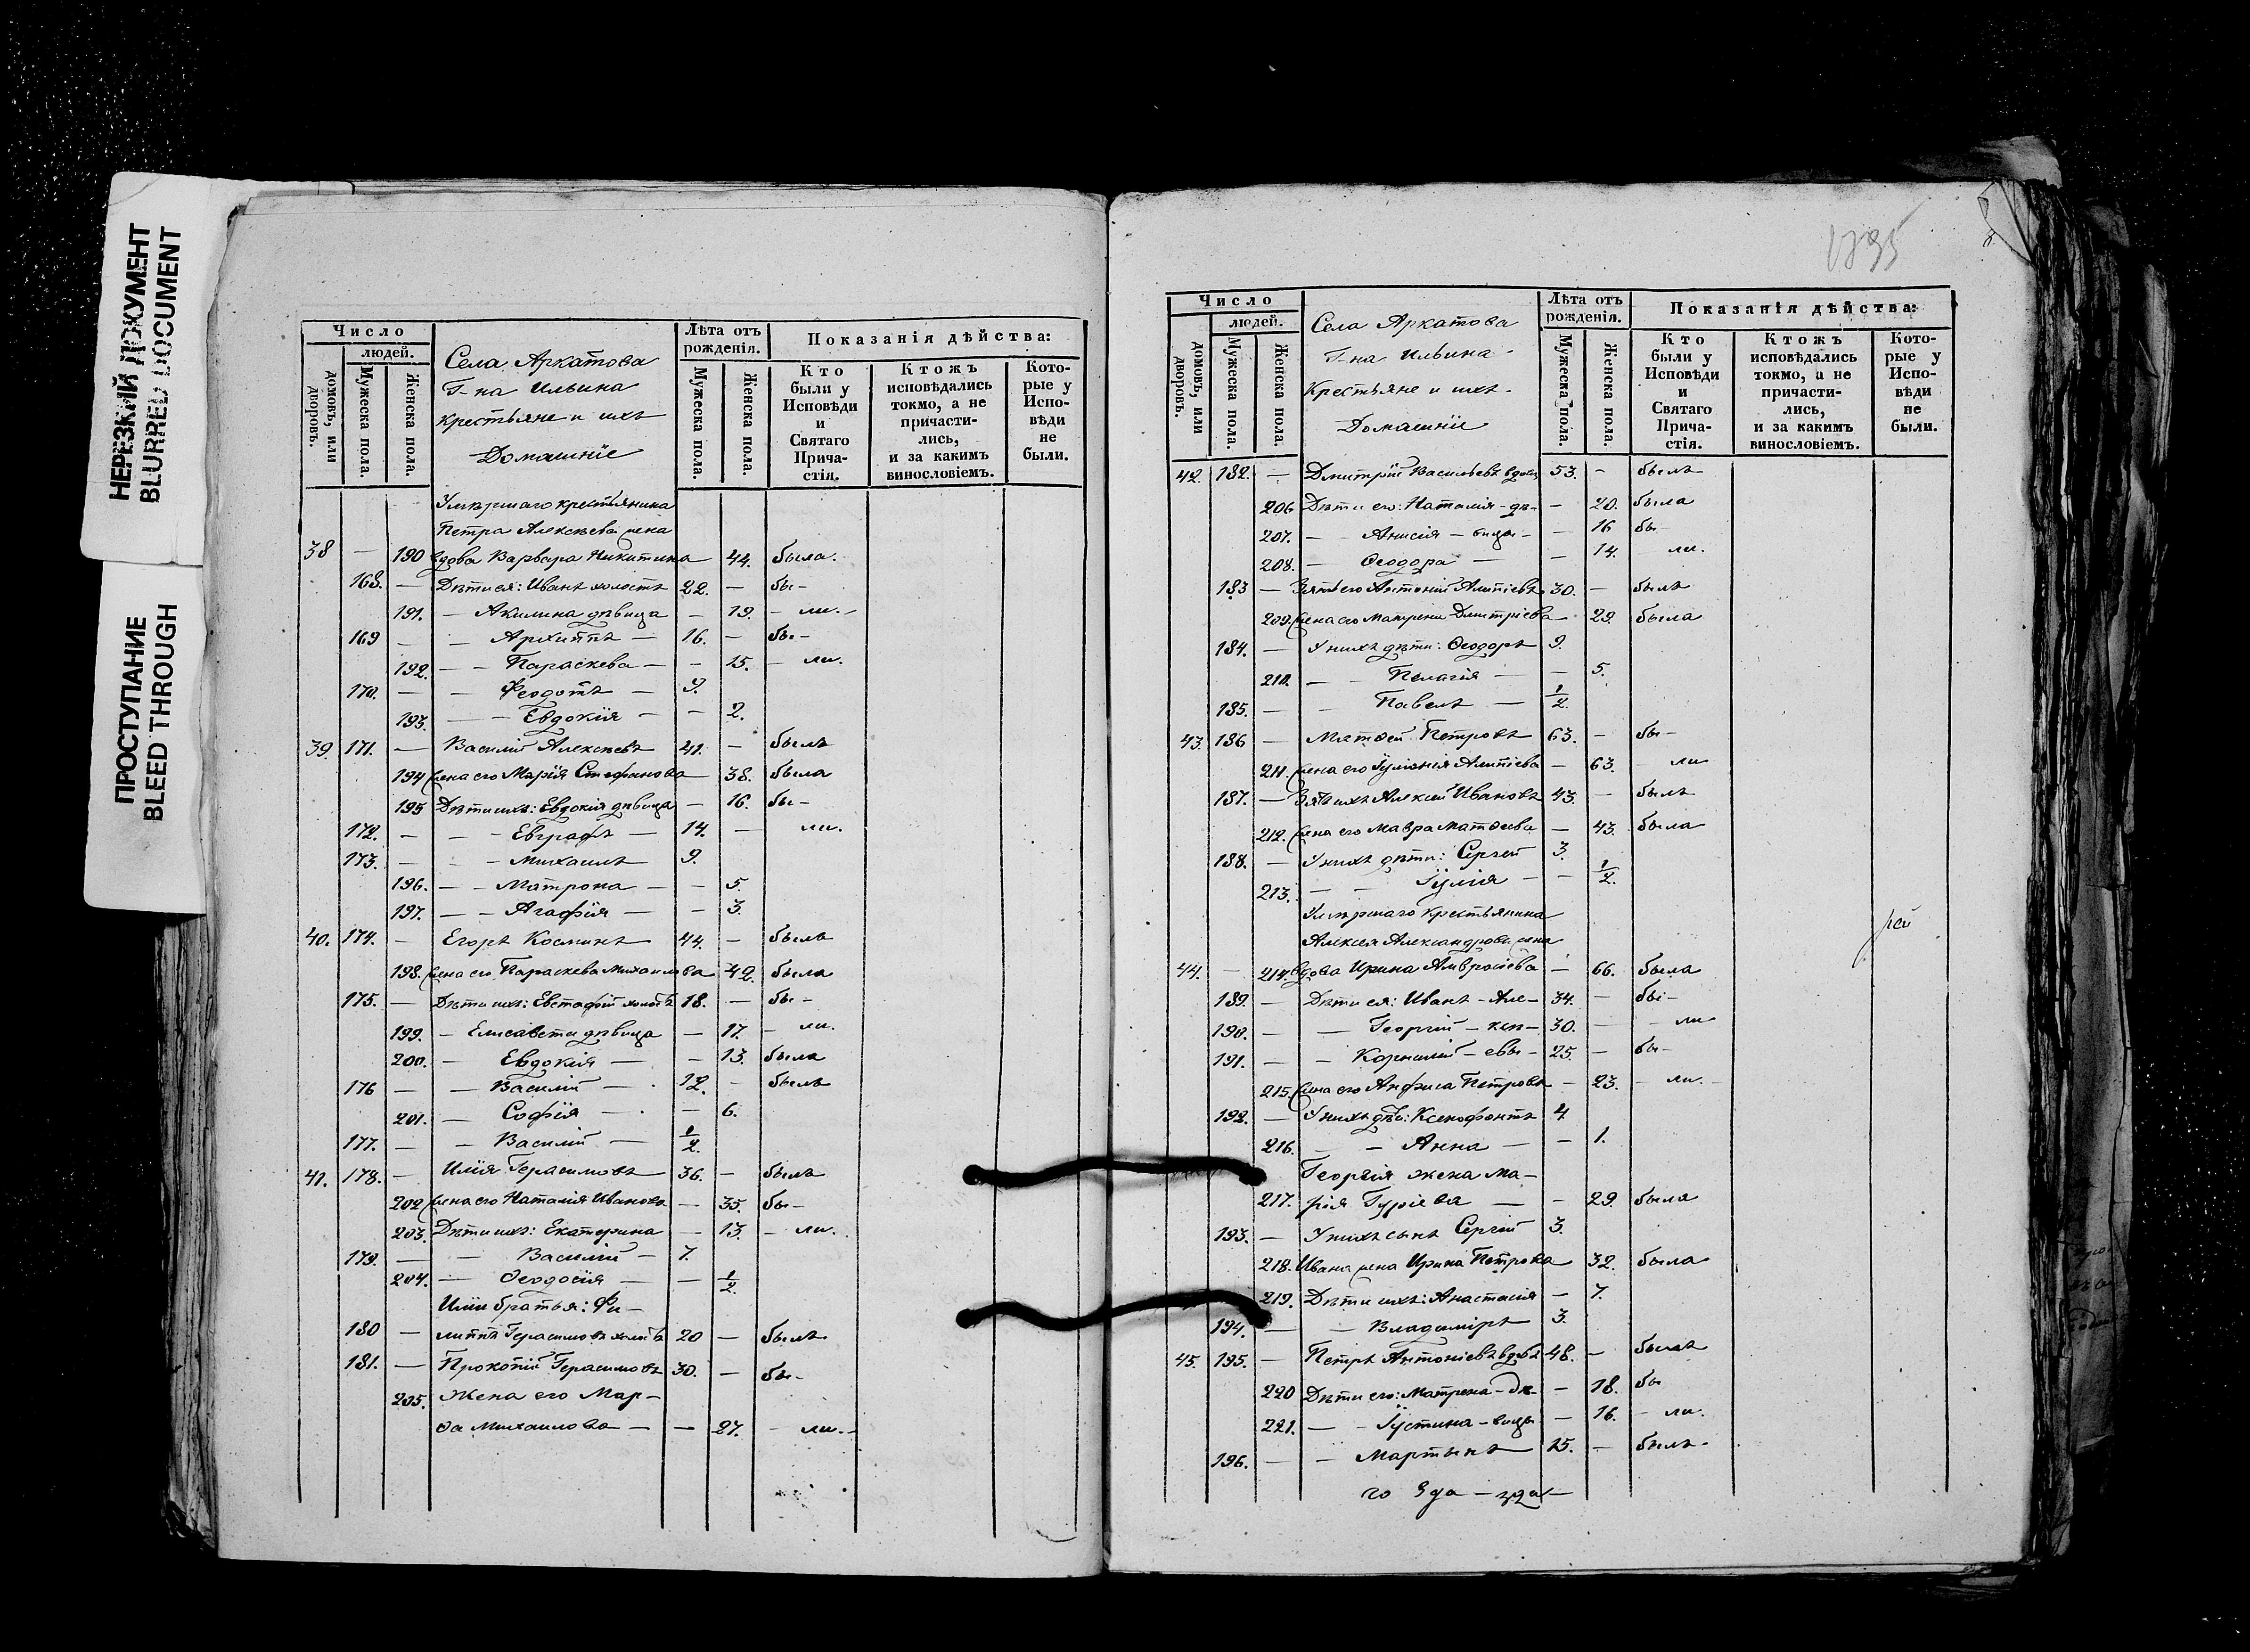 НЕРЕЗКИЙ ДОКУМЕНТ
BLURRED DOCUMENT
ПРОСТУПАНИЕ
BLEED THROUGH
Число
людей.
домовъ, или дворовъ.
Мужеска пола.
Женска пола.
Села Аркатова
Г-на Ильина
крестьяне и ихъ
Домашніе
Лѣта отъ рожденія.
Мужеска пола.
Женска пола.
Показанія дѣйства:
Кто были у Исповѣди и Святаго Прича- стія.
Ктожъ исповѣдались токмо, а не причасти- лись, и за какимъ винословіемъ.
Кото- рые у Испо- вѣди не были.
Умершаго крестьянина
Петра Алексѣева жена
38 — 190 вдова Варвара Никитина 44. была.
168. — Дѣти ея: Иванъ холостъ 22. — бы-
191. — Акилина дѣвица — 19. — ли. -
169 — — Архиппъ — 16. — бы-
192. — — Параскева — — 15. — ли.
170. — — Феодотъ — 9.
193. — — Евдокія — — 2.
39. 171. — Василій Алексѣевъ 41. — былъ
194 жена его Марія Стефанова 38. была
195 Дѣти ихъ: Евдокія дѣвица — 16. бы-
172. — — Евграфъ — 14. — ли.
173. — — Михаилъ 9.
196. — — Матрона — — 5.
197. — — Агафія — — 3.
40. 174. — Егоръ Косминъ 44. — былъ
198. жена его Параскева Михаилова 42. была
175. — Дѣти ихъ: Евстафій холостъ 18. — бы-
199. — Елисавета дѣвица — 17. — ли.
200. — Евдокія — — 13. была
176 — — Василій — 12. — былъ
201. — Софія — — 6.
177. — — Василій — 1/2.
41. 178. — Илія Герасимовъ 36. — былъ
202 жена его Наталія Иванова — 35. бы-
203. Дѣти ихъ: Екатерина — 13. — ли.
179. — — Василій — 7.
204. — Ѳеодосія — — 1/2.
Иліи братья: Фи-
180 — липпъ Герасимовъ холостъ 20 — былъ
181. — Прокопій Герасимовъ 30. — бы-
205. жена его Мар-
ѳа Михаилова — — 27. — ли. -
1795
Число
людей.
домовъ, или дворовъ.
Мужеска пола.
Женска пола.
Села Аркатова
Г-на Ильина
Крестьяне и ихъ
Домашніе
Лѣта отъ рожденія.
Мужеска пола.
Женска пола.
Показанія дѣйства:
Кто были у Исповѣди и Святаго Прича- стія.
Ктожъ исповѣдались токмо, а не причасти- лись, и за какимъ винословіемъ.
Кото- рые у Испо- вѣди не были.
42. 182. — Дмитрій Васильевъ вдовъ 53. — былъ
206 Дѣти его: Наталія - дѣ- — 20. была
207. — Анисія — вицы — — 16 бы-
208. — Ѳеодора — — 14. — ли.
183 — Зять его Антоній Алипіевъ 30. — былъ
209. жена его Матрена Дмитріева 29. была
184. — У нихъ дѣти: Ѳеодоръ 9.
210. — — Пелагія — — 5.
185. — — Павелъ — 1/2.
43. 186 — Матѳей Петровъ 63. — бы-
211. жена его Іуліанія Алипіева — 63. — ли
187. — Зять ихъ Алексій Ивановъ 43. — былъ
212. жена его Мавра Матѳеева — 43. была
188. — У нихъ дѣти: Сергій 3.
213. — — Іулія — — 1/2.
Умершаго крестьянина
Алексея Александрова жена
44. — 214. вдова Ирина Амвросіева — 66. была
189. — Дѣти ея: Иванъ - Але- 34. — бы-
190. — — Георгій - ксѣ- 30. — ли
191. — — Корнилій - евы - 25. — бы-
215. жена его Анфиса Петрова — 23. — ли. -
192. — У нихъ дѣти: Ксенофонтъ 4
216. — — Анна — — 1.
Георгія жена Ма-
217. рія Гуріева — — 29. была
193. — У нихъ сынъ Сергій 3.
218. Ивана жена Ирина Петрова 32. была
219. Дѣти ихъ: Анастасія — 7.
194. — — Владиміръ 3.
45. 195. — Петръ Антоніевъ вдовъ 48. — былъ
220 Дѣти его: Матрена - дѣ- — 18. бы
221. — — Іустина - вицы — 16. — ли.
196. — — Мартынъ 15. — былъ -
рей